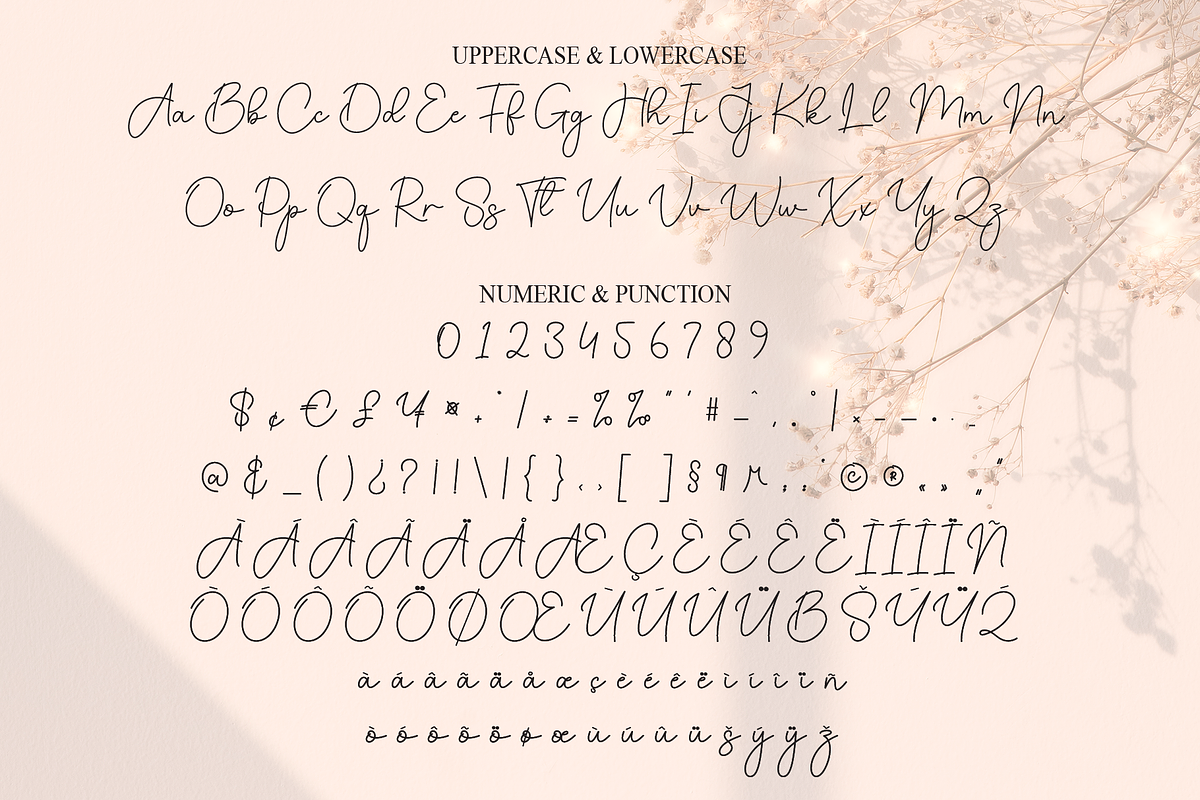 UPPERCASE & LOWERCASE
Aa Bb Cc Dd Ee Ff Gg Hh Ii Jj Kk Ll Mm Nn
Oo Pp Qq Rr Ss Tt Uu Vv Ww Xx Yy Zz
NUMERIC & PUNCTION
0 1 2 3 4 5 6 7 8 9
$ ¢ € £ ¥ ¤ + ˙ / ÷ = % ‰ " ' # – ˆ , . ° | × – — • · -
@ & _ ( ) ¿ ? ¡ ! \ | { } ‹ › [ ] § ¶ µ ; : © ® « » „ "
À Á Â Ã Ä Å Æ Ç È É Ê Ë Ì Í Î Ï Ñ
Ò Ó Ô Õ Ö Ø Œ Ù Ú Û Ü B Š Ý Ÿ Z
à á â ã ä å æ ç è é ê ë ì í î ï ñ
ò ó ô õ ö ø œ ù ú û ü š ý ÿ ž